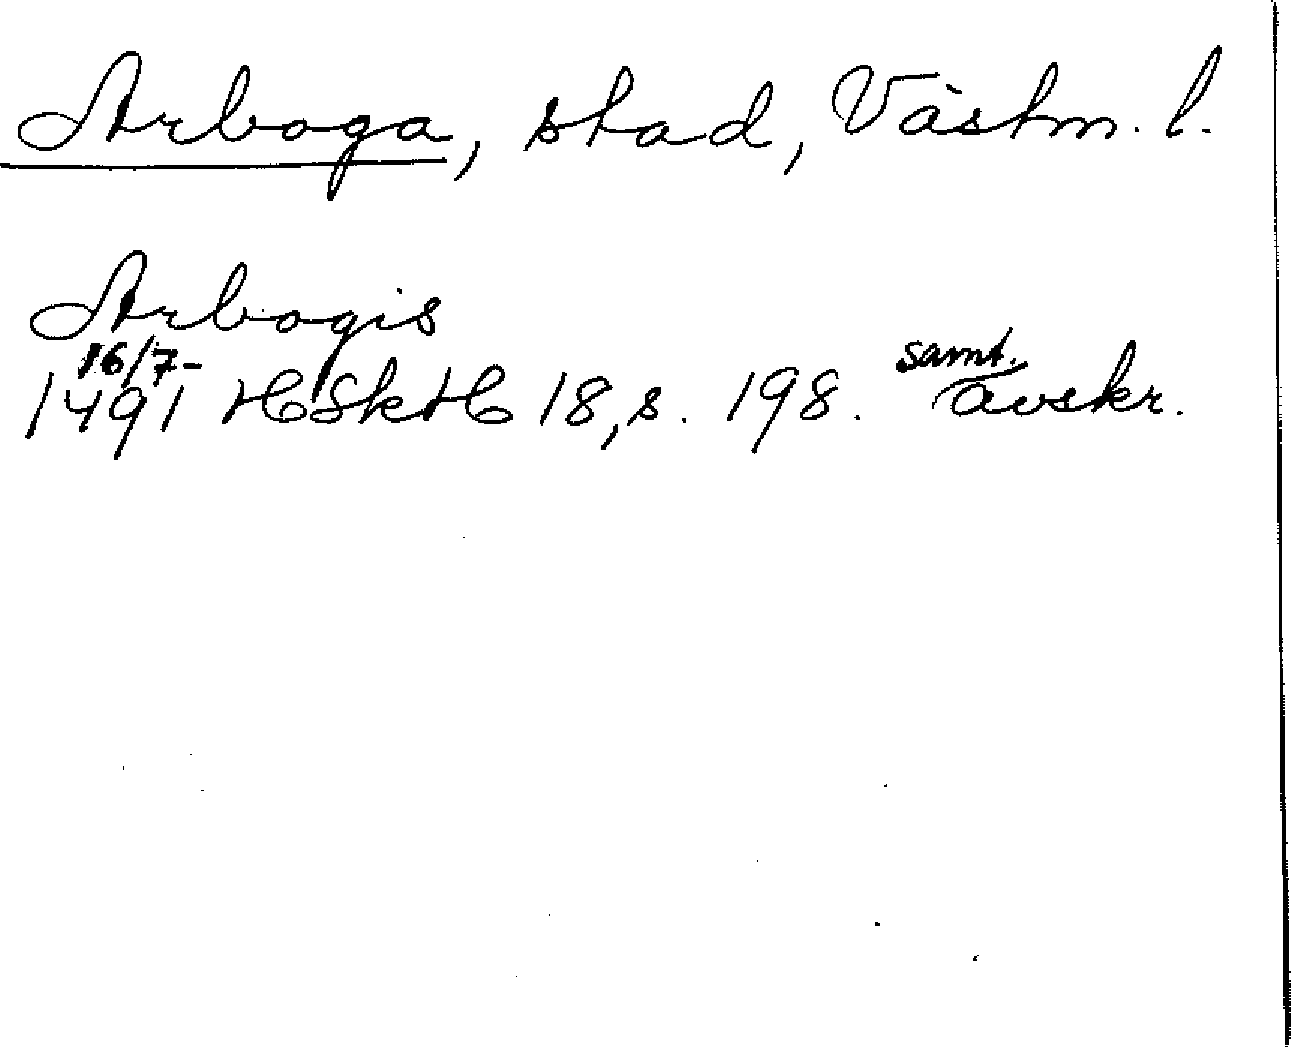 Arboga, stad, Västm. l.
Arbogis
16/7-
1491 HSkH 18, s. 198. samt. avskr.